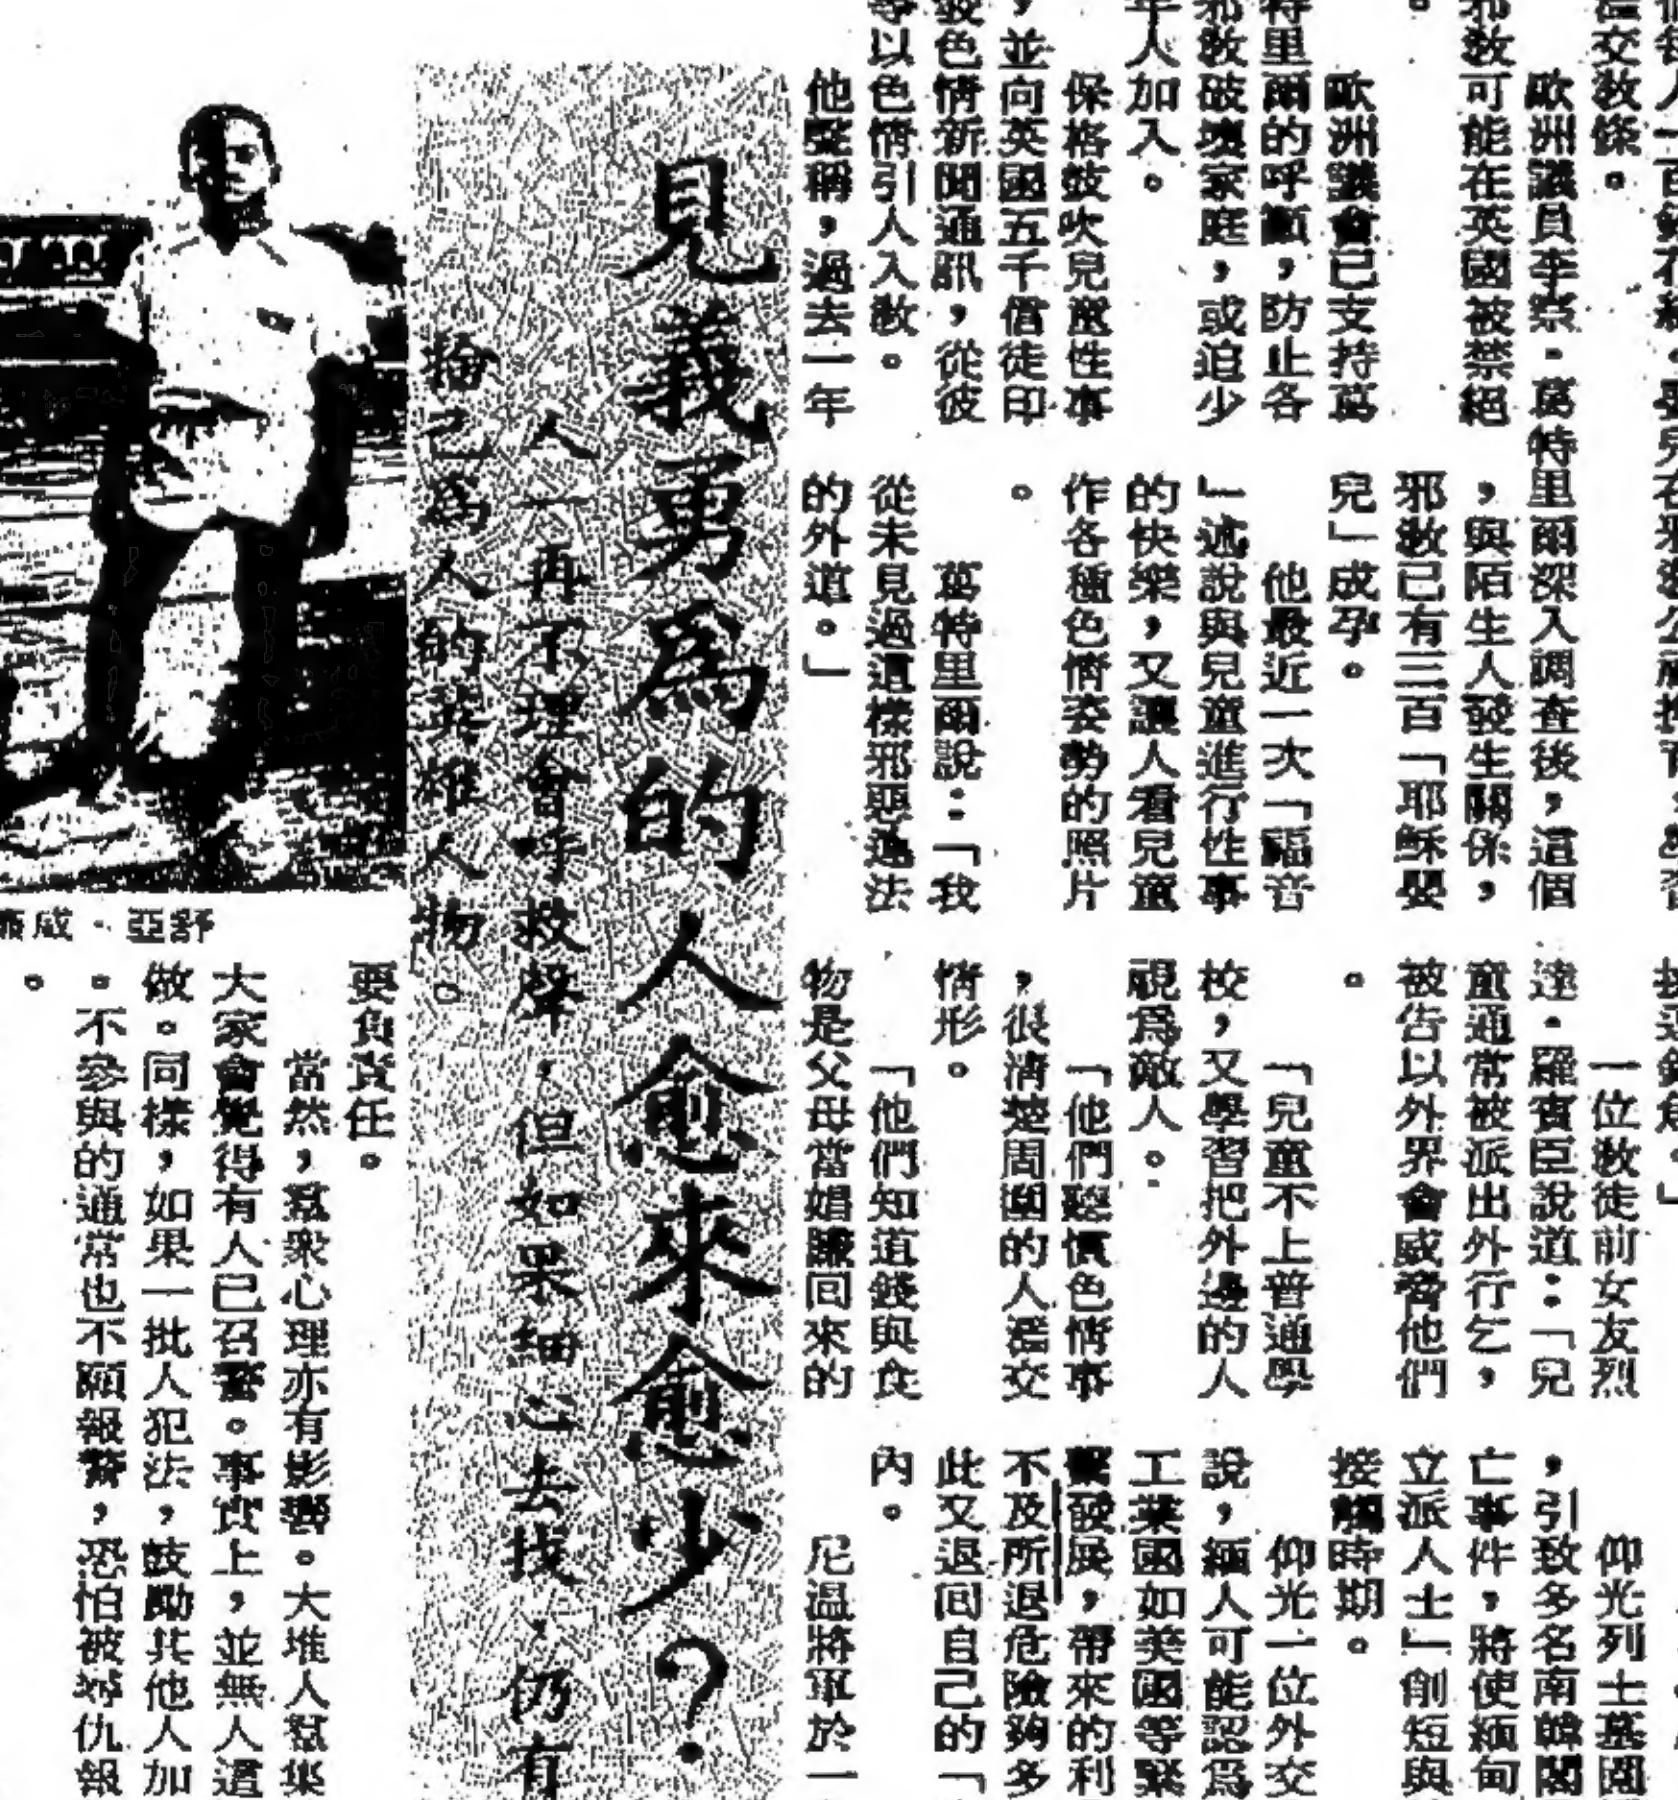 濫交教條。
歐洲議員李察‧萬特里爾深入調查後，這個
邪教可能在英國被禁絕
。
歐洲議會已支持萬
特里爾的呼籲，防止各
邪教破壞家庭，或迫少
年人加入。
保格鼓吹兒童性事
，並向英國五千信徒印
發色情新聞通訊，從彼
等以色情引人入教。
他聲稱，過去一年
，與陌生人發生關係，
邪教已有三百「耶穌嬰
兒」成孕。
他最近一次「福音
」述說與兒童進行性事
的快樂，又讓人看兒童
作各種色情姿勢的照片
。
萬特里爾說：「我
從未見過這樣邪惡違法
的外道。」
一位教徒前女友烈
達‧羅賓臣說道：「兒
童通常被派出外行乞，
被告以外界會威脅他們
。
「兒童不上普通學
校，又學習把外邊的人
視爲敵人。
「他們聽慣色情事
，很清楚周圍的人濫交
情形。
「他們知道錢與食
物是父母當娼賺回來的
仰光列士墓園
，引致多名南韓閣
亡事件，將使緬甸
立派人士」削短與
接觸時期。
仰光一位外交
說，緬人可能認爲
工業國如美國等緊
發展，帶來的利
不及所退危險夠多
此又退回自己的「
內。
尼溫將軍於一
見義勇爲的人愈來愈少？
人一再不理會呼救聲，但如果細心去找，仍有
捨己爲人的英雄人物。
舒亞‧威
要負責任。
當然，羣衆心理亦有影響。大堆人羣集
大家會覺得有人已召警。事實上，並無人這
做。同樣，如果一批人犯法，鼓勵其他人加
。不參與的通常也不願報警，恐怕被尋仇報
。